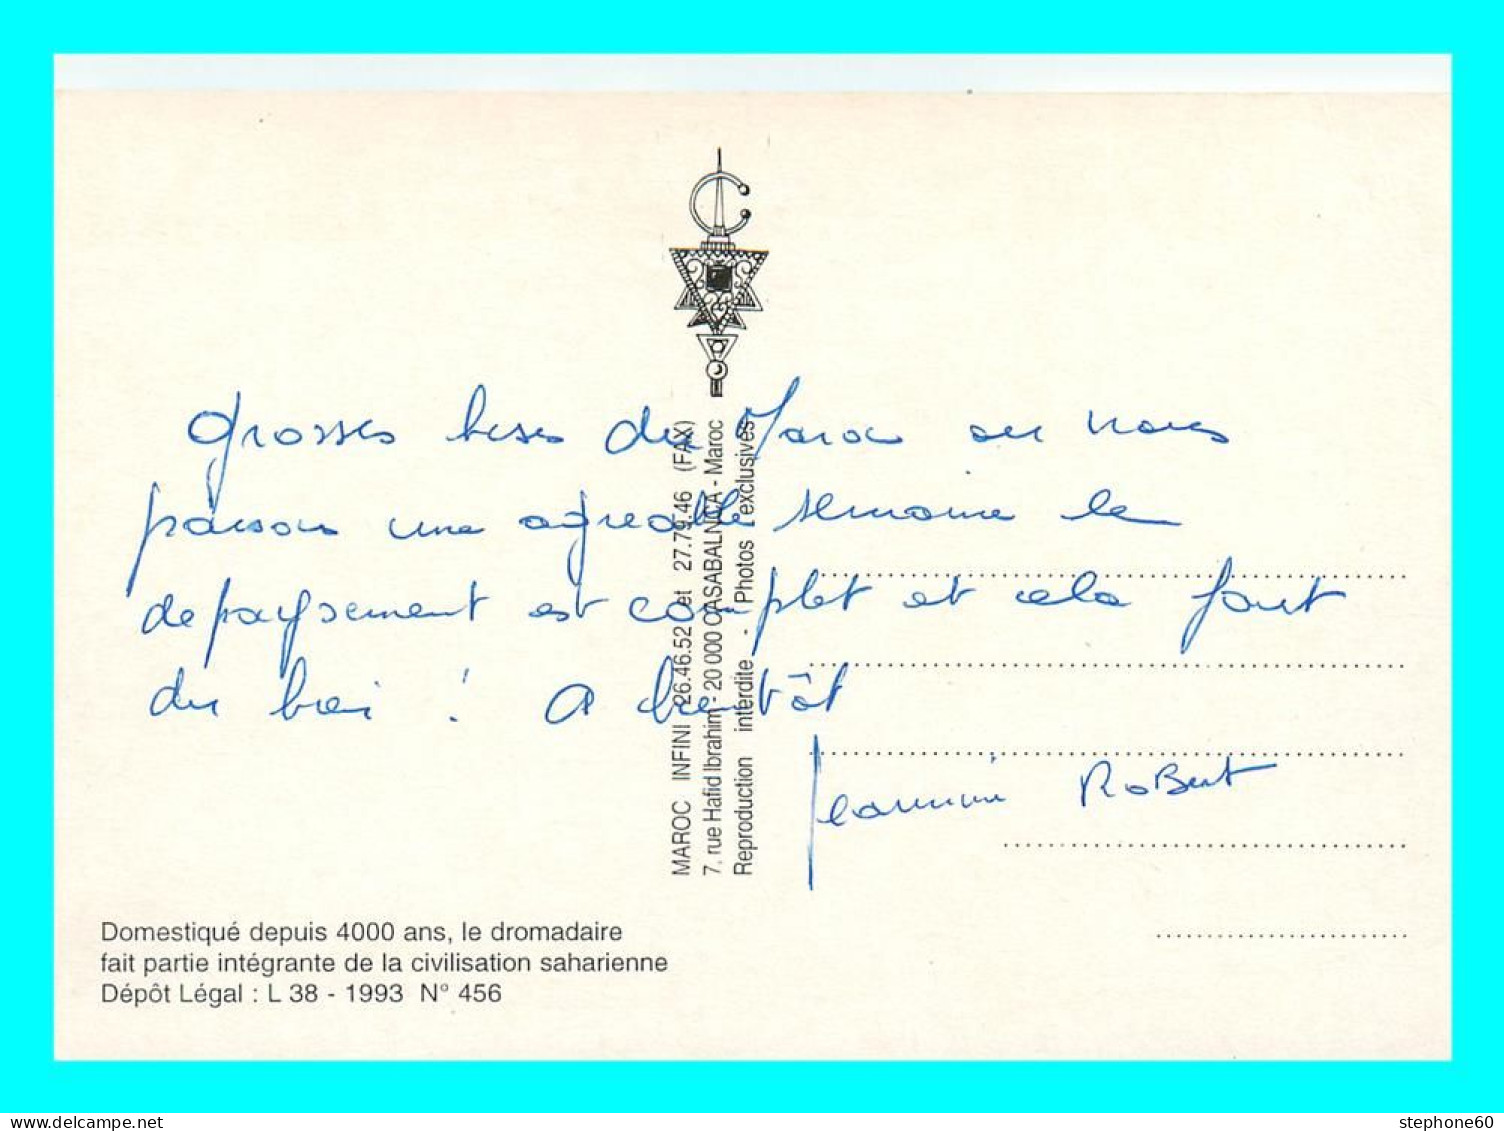 Grosses bises du Maroc ou nous
passons une agreable semaine le
depaysement est complet et cela fait
du bien ! A bientôt
Jeannine Robert
MAROC INFINI 26.46.52 et 27.79.46 (FAX)
7, rue Hafid Ibrahim - 20 000 CASABALNCA - Maroc
Reproduction interdite - Photos exclusives
Domestiqué depuis 4000 ans, le dromadaire
fait partie intégrante de la civilisation saharienne
Dépôt Légal : L 38 - 1993 N° 456
stephone60